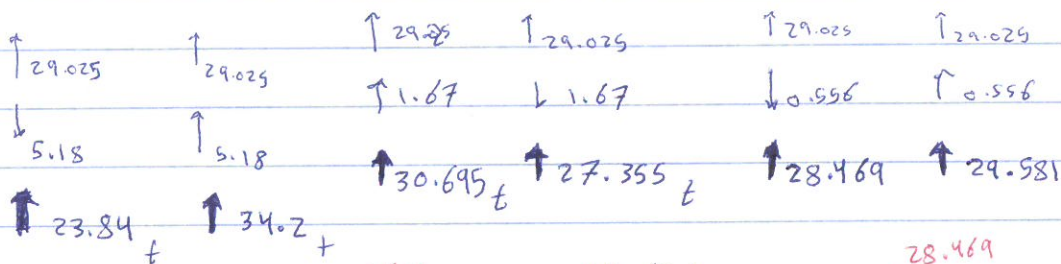 ↑ 29.025 ↑ 29.025 ↑ 29.025 ↑ 29.025 ↑ 29.025 ↑ 29.025
↓ 5.18 ↑ 5.18 ↑ 1.67 ↓ 1.67 ↓ 0.556 ↑ 0.556
↑ 23.84 t ↑ 34.2 t ↑ 30.695 t ↑ 27.355 t ↑ 28.469 ↑ 29.581
28.469